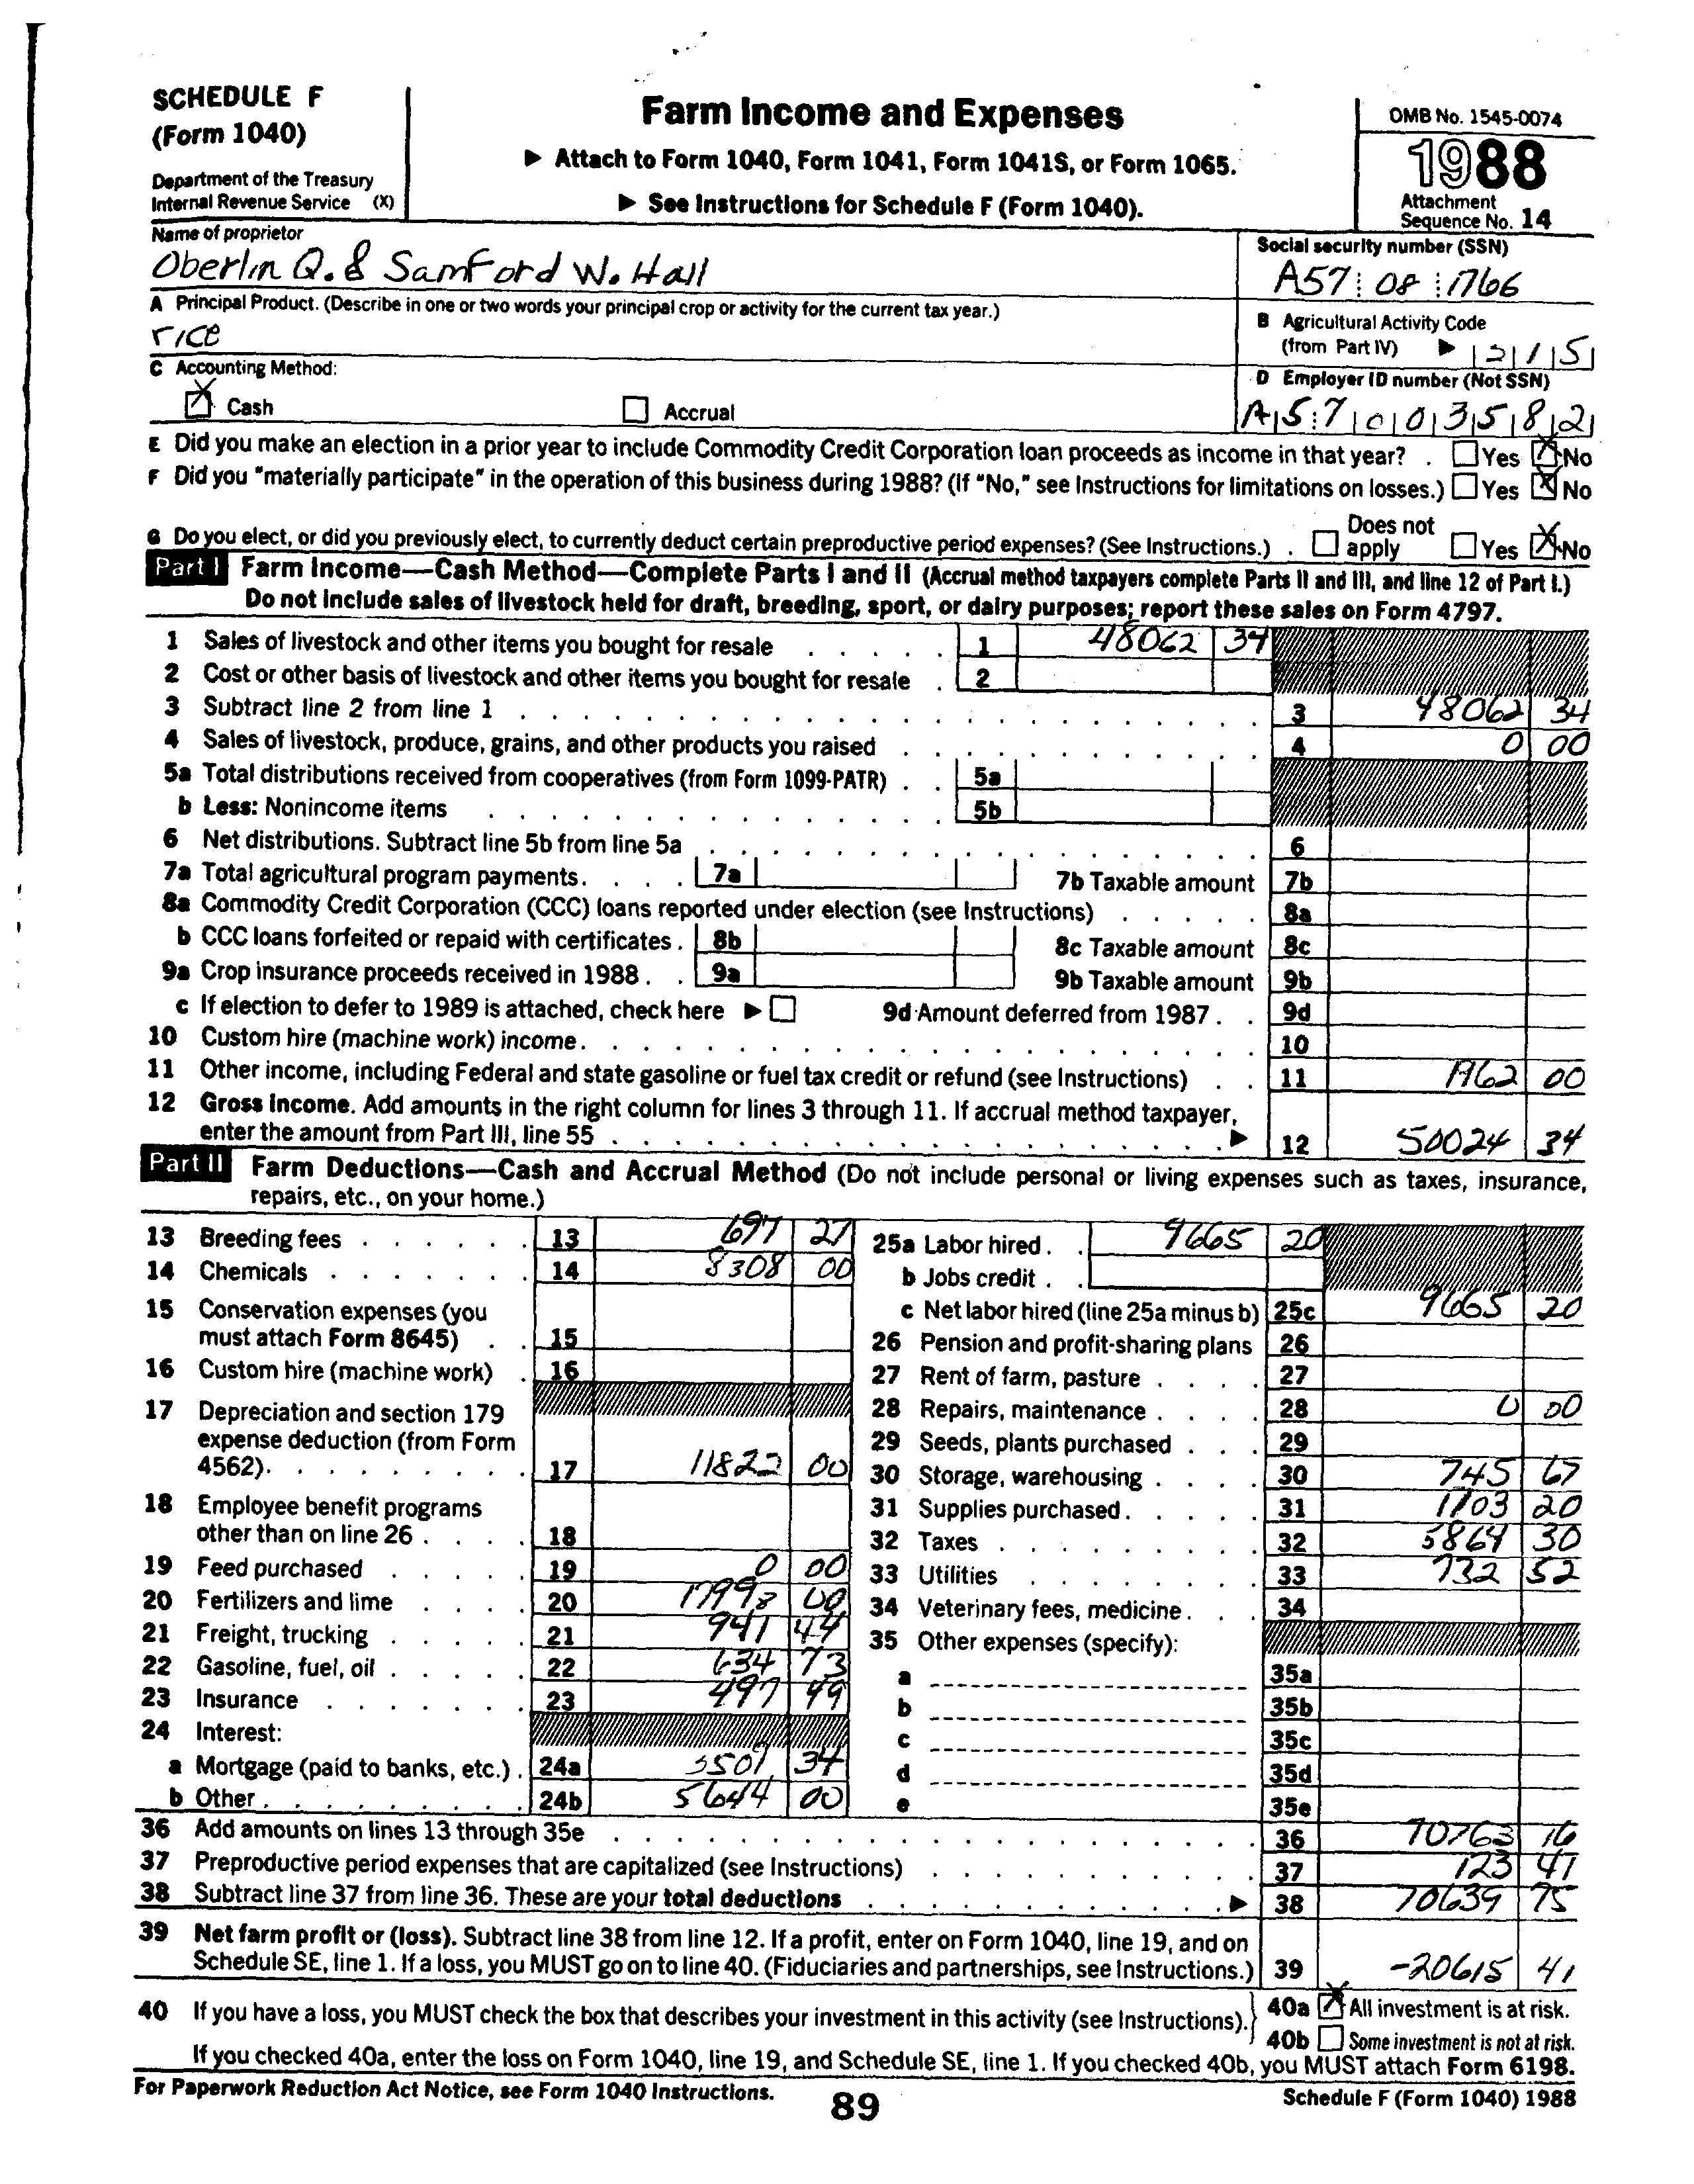 SCHEDULE F
(Form 1040)
Department of the Treasury
Internal Revenue Service (X)
Farm Income and Expenses
▶ Attach to Form 1040, Form 1041, Form 1041S, or Form 1065.
▶ See Instructions for Schedule F (Form 1040).
OMB No. 1545-0074
1988
Attachment
Sequence No. 14
Name of proprietor
Oberlin Q. & Samford W. Hall
Social security number (SSN)
A57 08 1766
A Principal Product. (Describe in one or two words your principal crop or activity for the current tax year.)
rice
B Agricultural Activity Code
(from Part IV) ▶ 215
C Accounting Method:
Cash Accrual
D Employer ID number (Not SSN)
A57003582
E Did you make an election in a prior year to include Commodity Credit Corporation loan proceeds as income in that year? . Yes No
F Did you "materially participate" in the operation of this business during 1988? (If "No," see Instructions for limitations on losses.) Yes No
G Do you elect, or did you previously elect, to currently deduct certain preproductive period expenses? (See Instructions.) . Does not apply Yes No
Part I Farm Income—Cash Method—Complete Parts I and II (Accrual method taxpayers complete Parts II and III, and line 12 of Part I.)
Do not include sales of livestock held for draft, breeding, sport, or dairy purposes; report these sales on Form 4797.
1 Sales of livestock and other items you bought for resale 1 48062 34
2 Cost or other basis of livestock and other items you bought for resale 2
3 Subtract line 2 from line 1 3 48062 34
4 Sales of livestock, produce, grains, and other products you raised 4 0 00
5a Total distributions received from cooperatives (from Form 1099-PATR) 5a
b Less: Nonincome items 5b
6 Net distributions. Subtract line 5b from line 5a 6
7a Total agricultural program payments. 7a 7b Taxable amount 7b
8a Commodity Credit Corporation (CCC) loans reported under election (see Instructions) 8a
b CCC loans forfeited or repaid with certificates . 8b 8c Taxable amount 8c
9a Crop insurance proceeds received in 1988 . 9a 9b Taxable amount 9b
c If election to defer to 1989 is attached, check here ▶ 9d Amount deferred from 1987 . 9d
10 Custom hire (machine work) income. 10
11 Other income, including Federal and state gasoline or fuel tax credit or refund (see Instructions) 11 1962 00
12 Gross Income. Add amounts in the right column for lines 3 through 11. If accrual method taxpayer,
enter the amount from Part III, line 55 ▶ 12 50024 34
Part II Farm Deductions—Cash and Accrual Method (Do not include personal or living expenses such as taxes, insurance,
repairs, etc., on your home.)
13 Breeding fees 13 697 27
14 Chemicals 14 8308 00
15 Conservation expenses (you
must attach Form 8645) 15
16 Custom hire (machine work) 16
17 Depreciation and section 179
expense deduction (from Form
4562). 17 11822 00
18 Employee benefit programs
other than on line 26 . 18
19 Feed purchased 19 0 00
20 Fertilizers and lime 20 17998 00
21 Freight, trucking 21 941 44
22 Gasoline, fuel, oil 22 634 73
23 Insurance 23 497 49
24 Interest:
a Mortgage (paid to banks, etc.) . 24a 5509 34
b Other . 24b 5644 00
25a Labor hired . 9665 20
b Jobs credit .
c Net labor hired (line 25a minus b) 25c 9665 20
26 Pension and profit-sharing plans 26
27 Rent of farm, pasture 27
28 Repairs, maintenance 28 0 00
29 Seeds, plants purchased 29
30 Storage, warehousing 30 745 67
31 Supplies purchased . 31 1703 20
32 Taxes 32 5864 30
33 Utilities 33 732 52
34 Veterinary fees, medicine . 34
35 Other expenses (specify):
a 35a
b 35b
c 35c
d 35d
e 35e
36 Add amounts on lines 13 through 35e 36 70763 16
37 Preproductive period expenses that are capitalized (see Instructions) 37 123 41
38 Subtract line 37 from line 36. These are your total deductions ▶ 38 70639 75
39 Net farm profit or (loss). Subtract line 38 from line 12. If a profit, enter on Form 1040, line 19, and on
Schedule SE, line 1. If a loss, you MUST go on to line 40. (Fiduciaries and partnerships, see Instructions.) 39 -20615 41
40 If you have a loss, you MUST check the box that describes your investment in this activity (see Instructions). 40a All investment is at risk.
40b Some investment is not at risk.
If you checked 40a, enter the loss on Form 1040, line 19, and Schedule SE, line 1. If you checked 40b, you MUST attach Form 6198.
For Paperwork Reduction Act Notice, see Form 1040 Instructions.
89
Schedule F (Form 1040) 1988